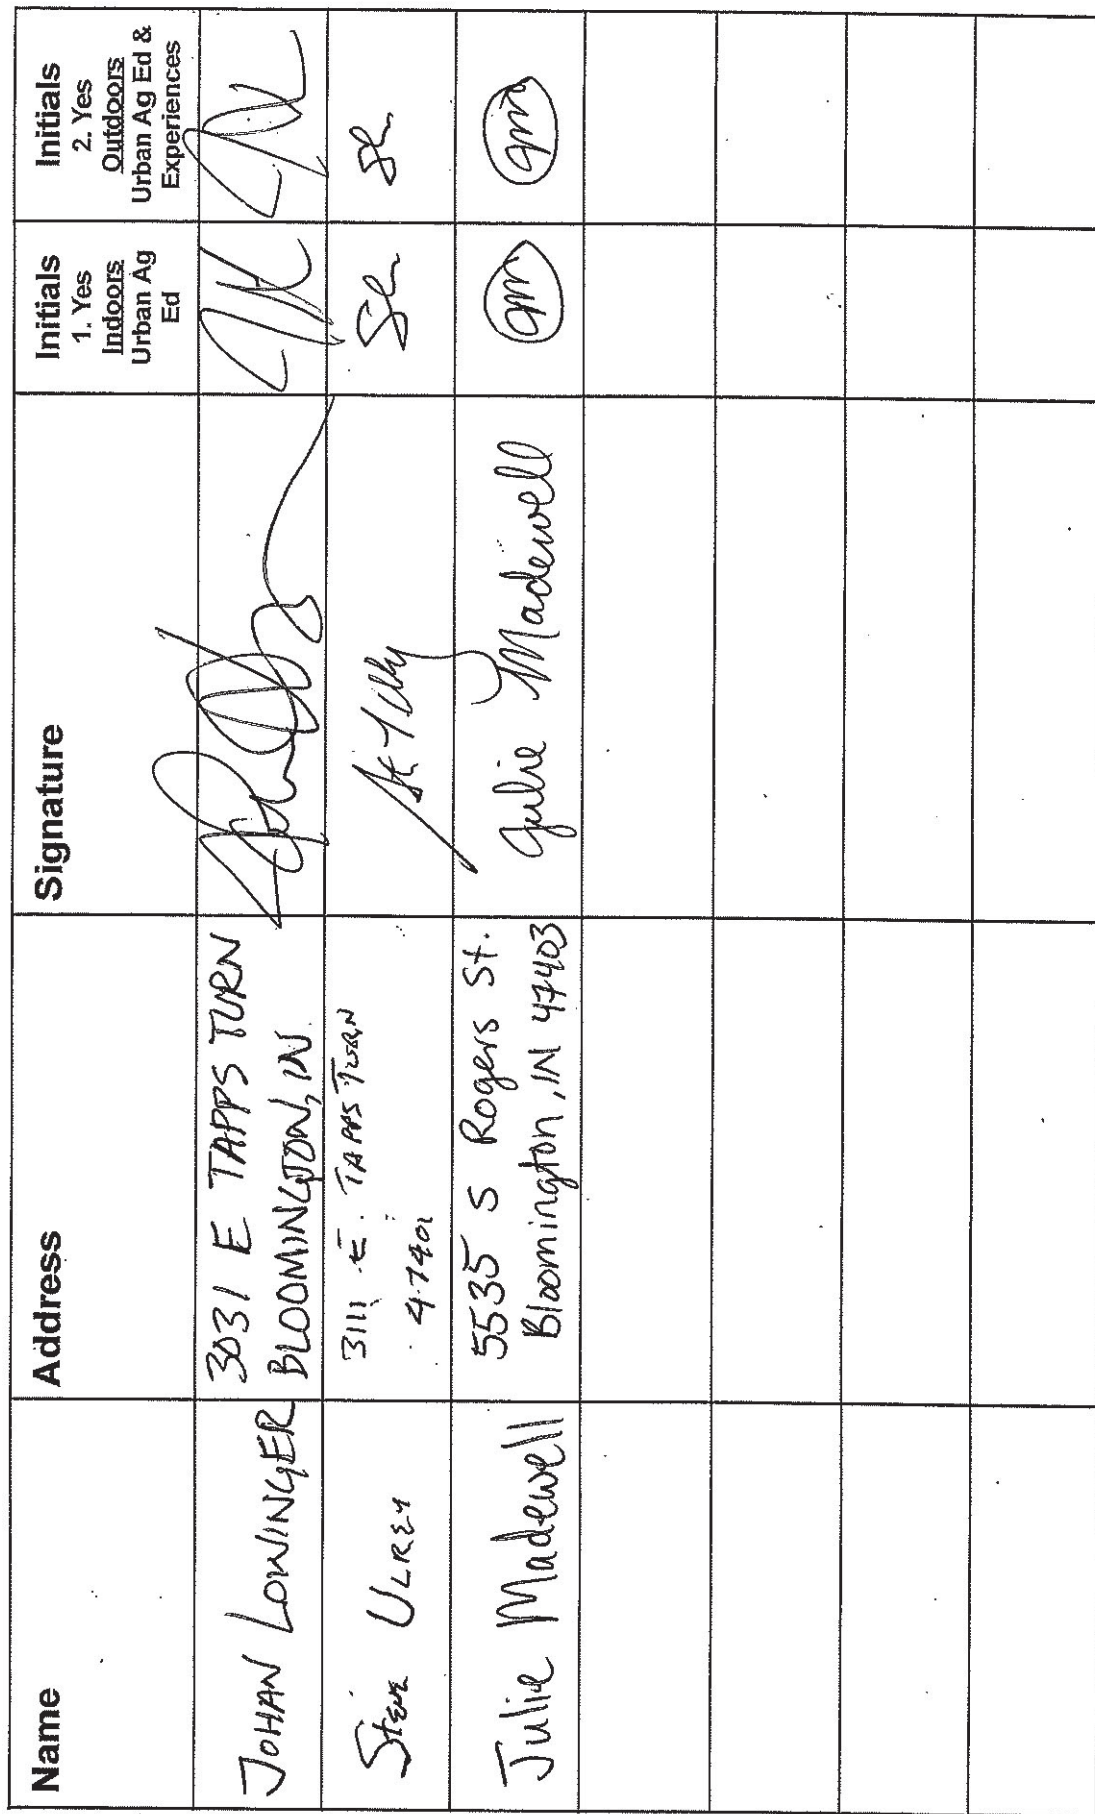 Name
Address
Signature
Initials
1. Yes
Indoors
Urban Ag
Ed
Initials
2. Yes
Outdoors
Urban Ag Ed &
Experiences
JOHAN LOWINGER
3031 E TAPPS TURN
BLOOMINGTON, IN
Steve ULREY
3111 E. TAPPS TURN
47401
Julie Madewell
5535 S Rogers St.
Bloomington, IN 47403
Julie Madewell
Jm
Jm